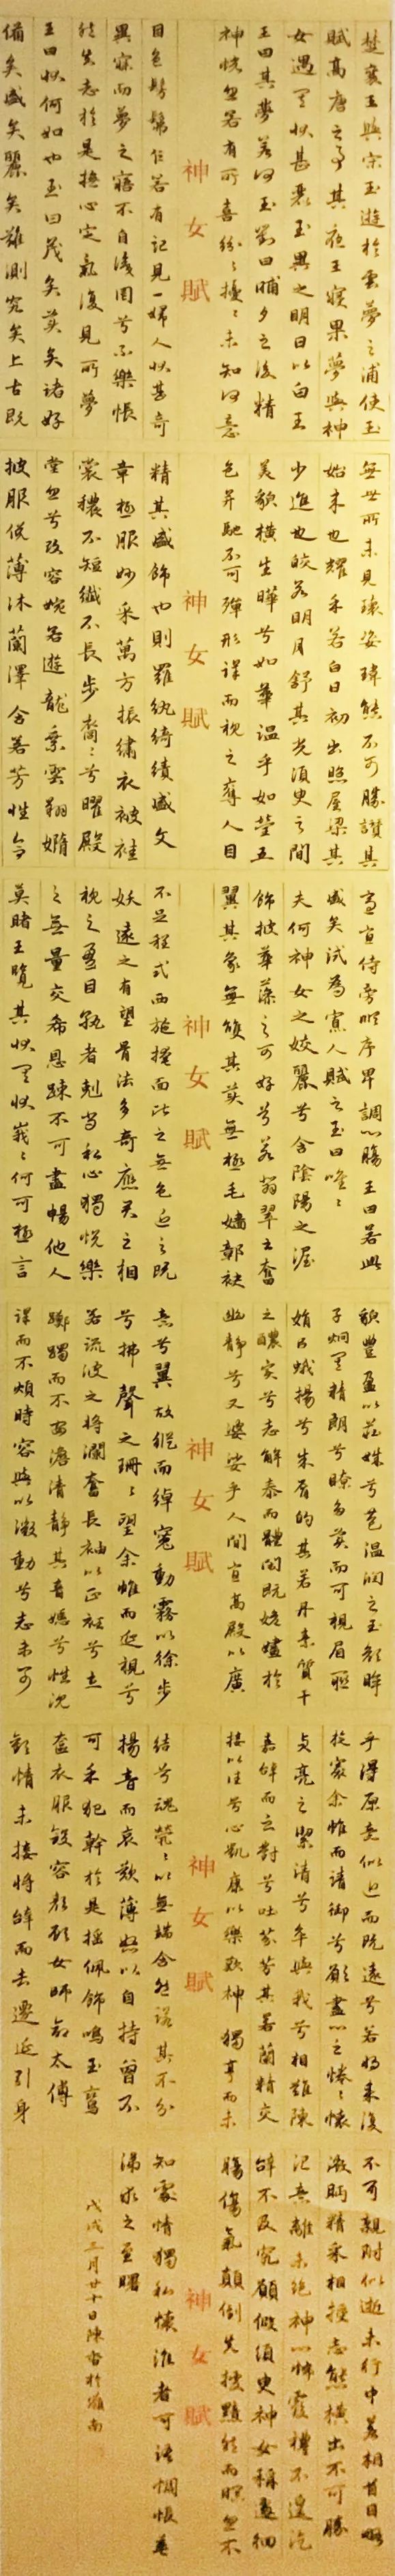 楚襄王與宋玉遊於雲夢之浦使玉
賦高唐之事其夜王寢果夢與神
女遇其狀甚麗玉異之明日以白王
王曰其夢若何玉對曰晡夕之後精
神怳忽若有所喜紛々擾々未知何意
神女賦
目色髣髴乍若有記見一婦人狀甚奇
異寐而夢之寤不自識罔兮不樂悵
然失志於是撫心定氣復見所夢
王曰狀何如也玉曰茂矣美矣諸好
備矣盛矣麗矣難測究矣上古既
無世所未見瓌姿瑋態不可勝讚其
始來也耀乎若白日初出照屋梁其
少進也皎若明月舒其光須臾之間
美貌橫生曄兮如華溫乎如瑩五
色並馳不可殫形詳而視之奪人目
神女賦
精其盛飾也則羅紈綺績盛文
章極服妙采萬方振繡衣被袿
裳穠不短纖不長步裔々兮曜殿
堂忽兮改容婉若遊龍乘雲翔嫷
披服侻薄沐蘭澤含若芳性合
適宜侍旁順序卑調心腸王曰若此
盛矣試為寡人賦之玉曰唯々
夫何神女之姣麗兮含陰陽之渥
飾披華藻之可好兮若翡翠之奮
翼其象無雙其美無極毛嬙鄣袂
神女賦
不足程式西施掩面比之無色近之既
妖遠之有望骨法多奇應君之相
視之盈目孰者剋尚私心獨悅樂
之無量交希恩疎不可盡暢他人
莫睹王覽其狀其狀峩々何可極言
貌豐盈以莊姝兮苞溫潤之玉顏眸
子炯其精朗兮瞭多美而可視眉聯
娟以蛾揚兮朱唇的其若丹素質干
之醲實兮志解泰而體閑既姽嫿於
幽靜兮又婆娑乎人間宜高殿以廣
神女賦
意兮翼故縱而綽寬動霧以徐步
兮拂聲之珊々望余帷而延視兮
若流波之將瀾奮長袖以正衽兮立
躑躅而不安澹清靜其愔嫕兮性沈
詳而不煩時容與以微動兮志未可
乎得原意似近而既遠兮若將來復
旋褰余帷而請御兮願盡心之惓々懷
貞亮之絜清兮卒與我兮相難陳
嘉辭而云對兮吐芬芳其若蘭精交
接以往兮心凱康以樂歡神獨亨而未
神女賦
結兮魂煢々以無端含然諾其不分
揚音而哀歎薄怒以自持曾不
可乎犯幹於是搖佩飾鳴玉鸞
奩衣服斂容顏顧女師命太傅
歡情未接將辭而去遷延引身
不可親附似逝未行中若相首目略
微眄精采相授志態橫出不可勝
記意離未絕神心怖覆禮不遑訖
辭不及究願假須臾神女稱遽徊
腸傷氣顛倒失據黯然而暝忽不
神女賦
知處情獨私懷誰者可語惆悵垂
涕求之至曙
戊戌三月廿十日陳於嶺南